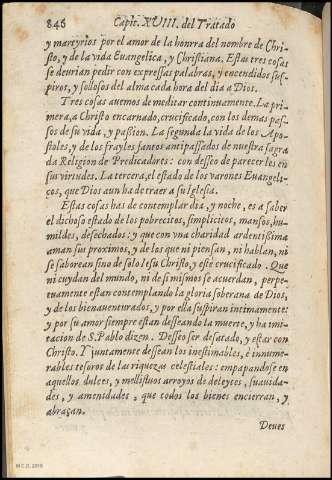 846 Capit. XVIII. del Tratado
y martyrios por el amor de la honrra del nombre de Chri-
sto, y de la vida Euangelica, y Christiana. Estas tres cosas
se deurian pedir con expressas palabras, y encendidos sus-
piros, y sollosos del alma cada hora del dia a Dios.
Tres cosas auemos de meditar continuamente. La pri-
mera, a Christo encarnado, crucificado, con los demas pas-
sos de su vida, y passion. La segunda la vida de los Apo-
stoles, y de los frayles santos antipassados de nuestra sagra
da Religion de Predicadores: con desseo de parecerles en
sus virtudes. La tercera, el estado de los varones Euangeli-
cos, que Dios aun ha de traer a su Iglesia.
Estas cosas has de contemplar dia, y noche, es a saber
el dichoso estado de los pobrecitos, simplicitos, mansos, hu-
mildes, desechados: y que con vna charidad ardentissima
aman sus proximos, y de los que ni piensan, ni hablan, ni
se saborean sino de solo Iesu Christo, y esse crucificado. Que
ni cuydan del mundo, ni de si mismos se acuerdan, perpe-
tuamente estan contemplando la gloria soberana de Dios,
y de los bienauenturados, y por ella suspiran intimamente:
y por su amor siempre estan desseando la muerte, y ha imi-
tacion de S. Pablo dizen. Desseo ser desatado, y estar con
Christo. Y juntamente dessean los inestimables, è innume-
rables tesoros de las riquezas celestiales: empapandose en
aquellos dulces, y mellifluos arroyos de deleytes, suauida-
des, y amenidades, que todos los bienes encierran, y
abraçan.
Deues
M.C.D. 2018